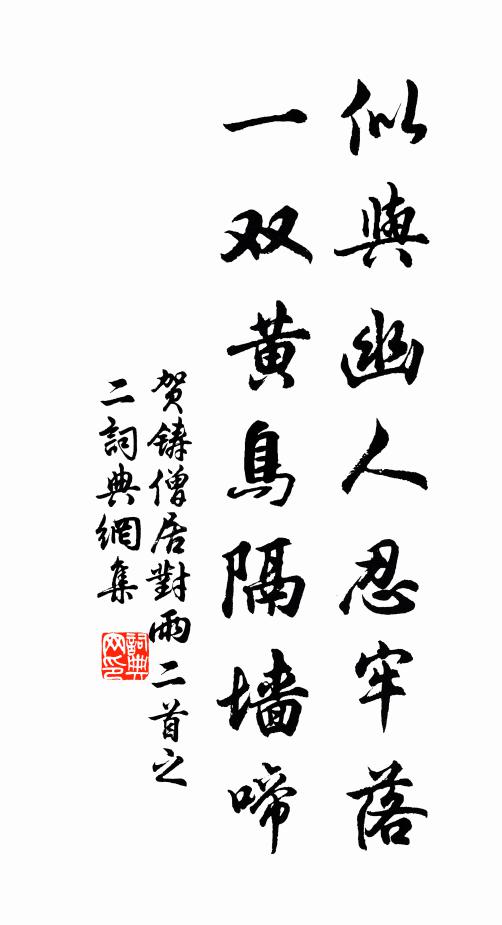 似與幽人忍牢落
一双黄鳥隔墙啼
贺鑄僧居對雨二首之
二詞典網集
詞典網印